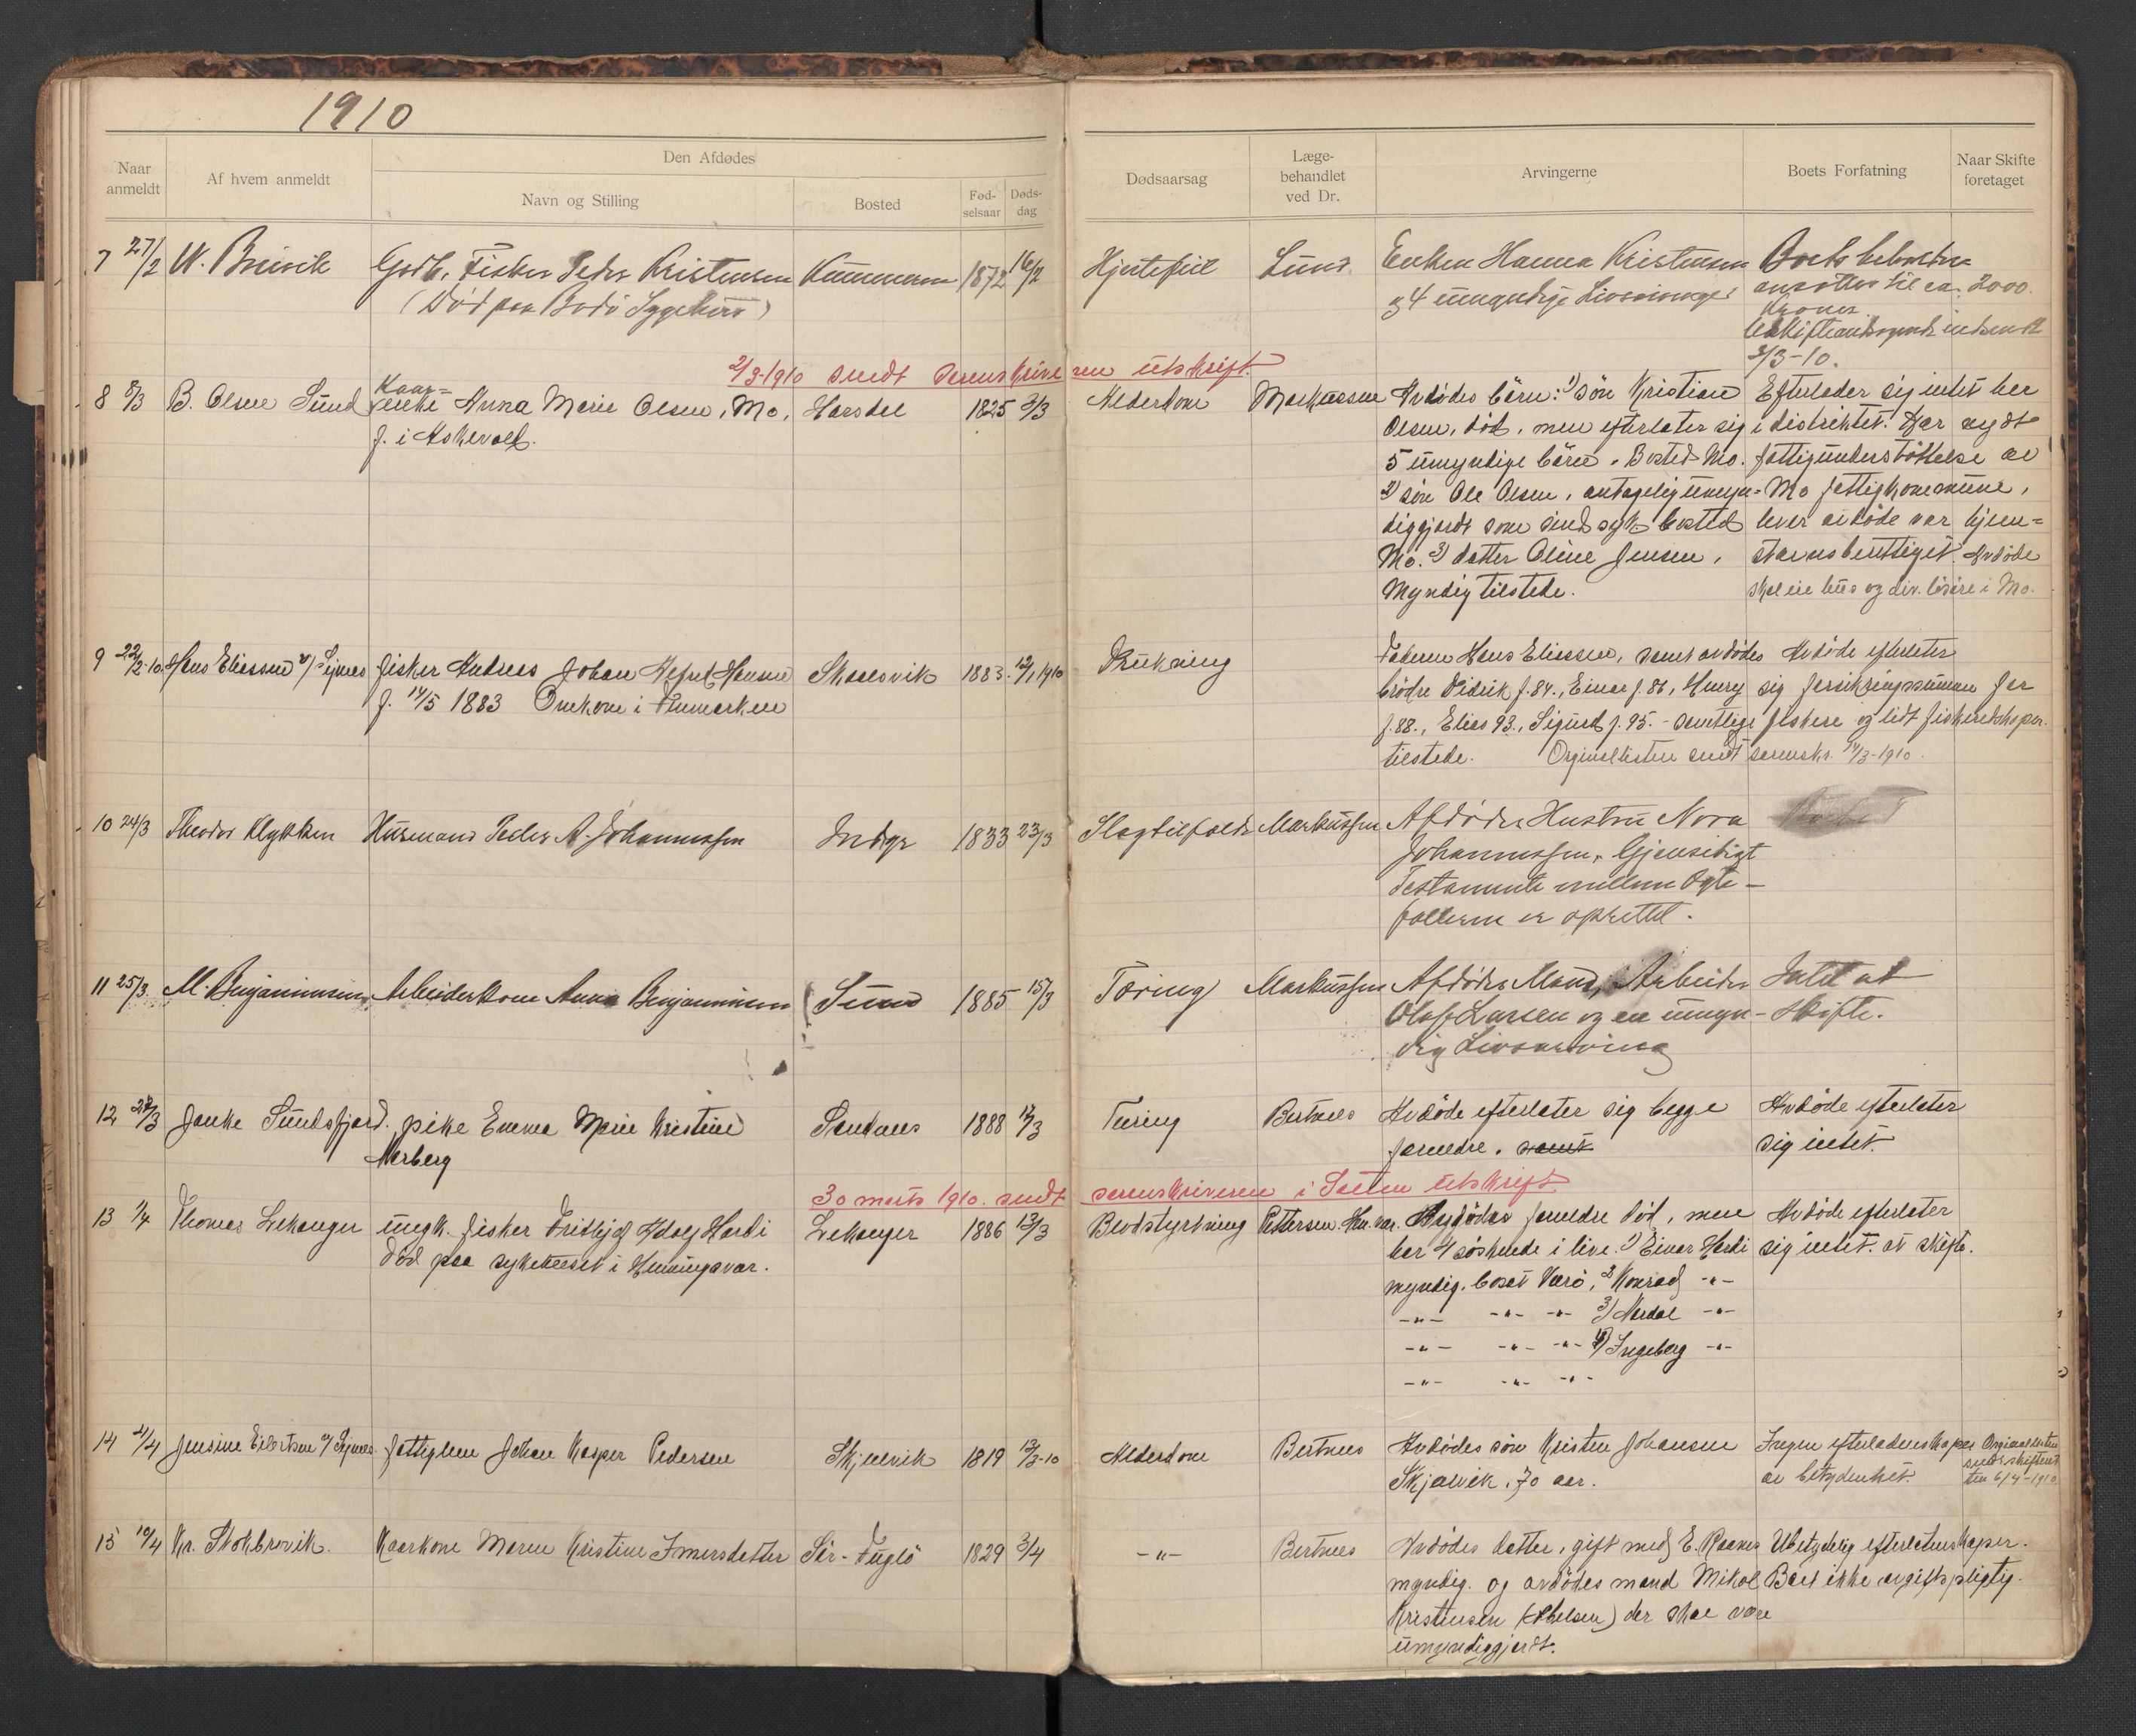 1910
Naar anmeldt
Af hvem anmeldt
Den Afdødes
Navn og Stilling
Bosted
Fød-selsaar
Døds-dag
Dødsaarsag
Læge-behandlet ved Dr.
Arvingerne
Boets Forfatning
Naar Skifte foretaget
7 27/2 W. Breivik Gdbr. Fisker Peder Kristensen 1872 16/2 Hjertefeil Lund Enken Hanna Kristensen Boets beholdn
(Død paa Bodø Sygehus) og 4 umyndige Livsarvinger ansættes til ca. 2000.
Kroner
indsendt
3/3-10.
2/3-1910 sendt sorenskriveren utskrift.
8 8/3 B. Olsen Sund Kaar-enke Anna Marie Olsen, Mo, Harsdal 1825 3/3 Alderdom Markussen Avdødes børn: 1) søn Kristian Efterlader sig intet her
f. i Askevold. Olsen, død, men efterlater sig i distriktet. Har nydt
5 umyndige børn. Bosted Mo. fattigunderstøttelse av
2) søn Ole Olsen, antagelig umyn- Mo fattigkommune,
diggjort som sindssyk bosted hvor avdøde var hjem-
Mo. 3) datter Oline Jensen, stavnsberettiget. Avdøde
Myndig tilstede. skal eie hus og div. løsøre i Mo.
9 22/2-10 Hans Eliassen Fisker Andreas Johan Hansen Skaasvik 1883 12/1 1910 Drukning Faderen Hans Eliassen, samt avdødes Avdøde efterlater
f. 14/5 1883 Omkom i Finmarken brødre Didrik f. 84., Einar f. 86, Henry sig forsikringssummen for
f. 88., Elias 93., Sigurd f. 95. - samtlige fiskere og lidt fiskeredskaper.
tilstede. Orginallisten sendt sorenskr. 14/3-1910.
10 24/3 Theodor Klykken Husmand Peder A. Johannessen Indyr 1833 23/3 Slagtilfælde Markussen Afdødes Hustru Nora
Johannessen. Gjensidigt
Testamente mellem Ægte-
fællerne er oprettet.
11 25/3 M. Benjaminsen Arbeiderkone Anna Benjaminsen Sund 1885 15/3 Tæring Markussen Afdødes Mand, Arbeider Intet at
Olaf Larsen og en umyn- Skifte.
dig Livsarving
12 29/3 Janke Sundsfjord. pike Emma Marie Kristine Sandnes 1888 17/3 Tæring Bertnes Avdøde efterlater sig begge Avdøde efterlater
Aarberg foreldre. samt sig intet.
30 marts 1910. sendt sorenskriveren i Salten utskrift
13 1/4 Thomas Lekanger ungk. fisker Fridtjof Adolf Hardi Lekanger 1886 13/3 Blodstyrtning Pettersen Hen.vær. Avdødes foreldre død, men Avdøde efterlater
Død paa sykehuset i Henningsvær. har 4 søskende i live. 1) Einar Hardi sig intet. at skifte.
myndig. bosat Værø, 2 Konrad -"-
-"- -"- -"- 3) Nordal -"-
-"- -"- -"- 4) Ingeborg -"-
-"- -"- -"-
14 4/4 Jensine Eilertsen Fattiglem Johan Kasper Pedersen Skjelvik 1819 13/3-10 Alderdom Bertnes Avdødes søn Kristen Johansen Ingen efterladenskaper Orginallisten
Skjelvik, 70 aar. av betydenhet. sendt skifteret
den 6/4-1910
15 10/4 Kr. Stokbrovik. Kaarkone Maren Kristine Imersdatter Sør-Fuglø 1829 3/4 -"- Bertnes Avdødes datter, gift med E. Ubetydelig efterlatenskaper.
myndig. og avdødes mand Mikal Boet ikke avgiftspligtig.
Kristensen (Abelsen) der skal være
umyndiggjordt.